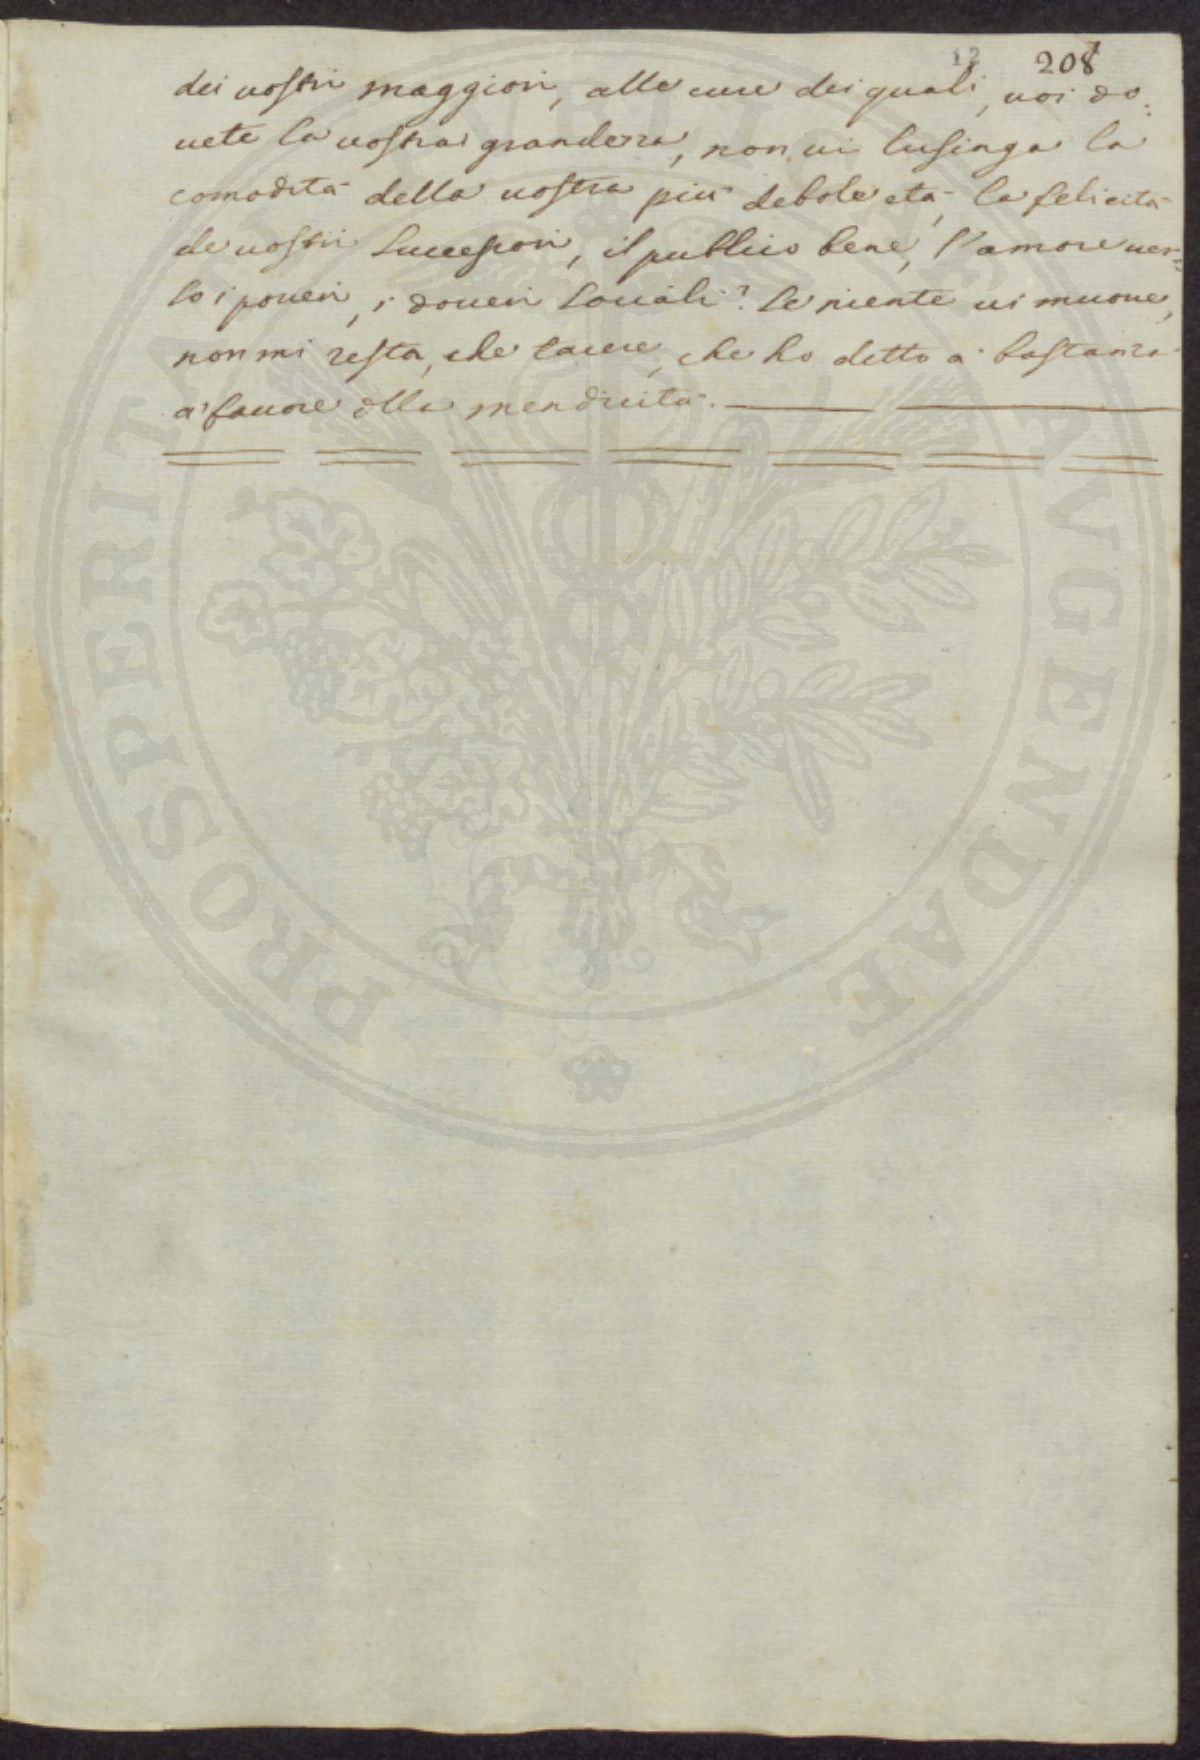 12 208
dei vostri maggiori, alle cure dei quali, voi do:
vete la vostra grandezza, non vi lusinga la
comodità della vostra più debole età, la felicità
de vostri Successori, il publico bene, l'amore ver=
so i poveri, i doveri sociali? Se niente vi muove,
non mi resta, che tacere, che ho detto a' bastanza
a' favore dlla mendicità.
PROSPERITATI PVBLICAE AVGENDAE